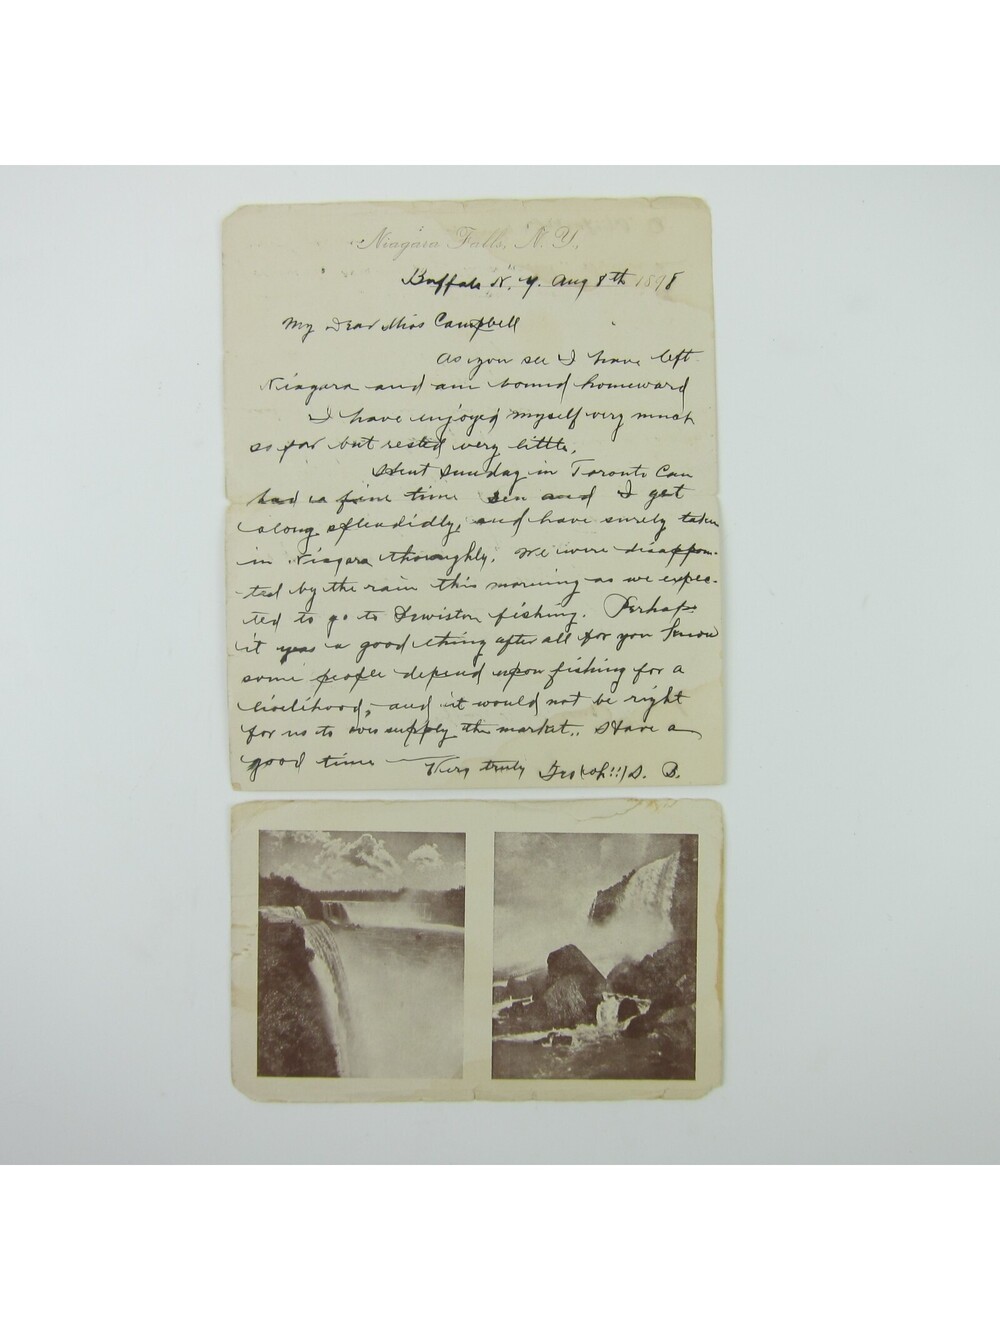 Niagara Falls, N. Y.,
Buffalo N. Y. Aug 8th 1898
My Dear Miss Campbell
As you see I have left
Niagara and am bound homeward
I have enjoyed myself very much
so far but rested very little.
Spent Sunday in Toronto Can
had a fine time and I get
along splendidly, and have surely taken
in Niagara thoroughly. We were disappoin-
ted by the rain this morning as we expec-
ted to go to Lewiston fishing. Perhaps
it was a good thing after all for you know
some people depend upon fishing for a
livelihood, and it would not be right
for us to over supply the market.. Have a
good time Very truly (oh!!) S. B.